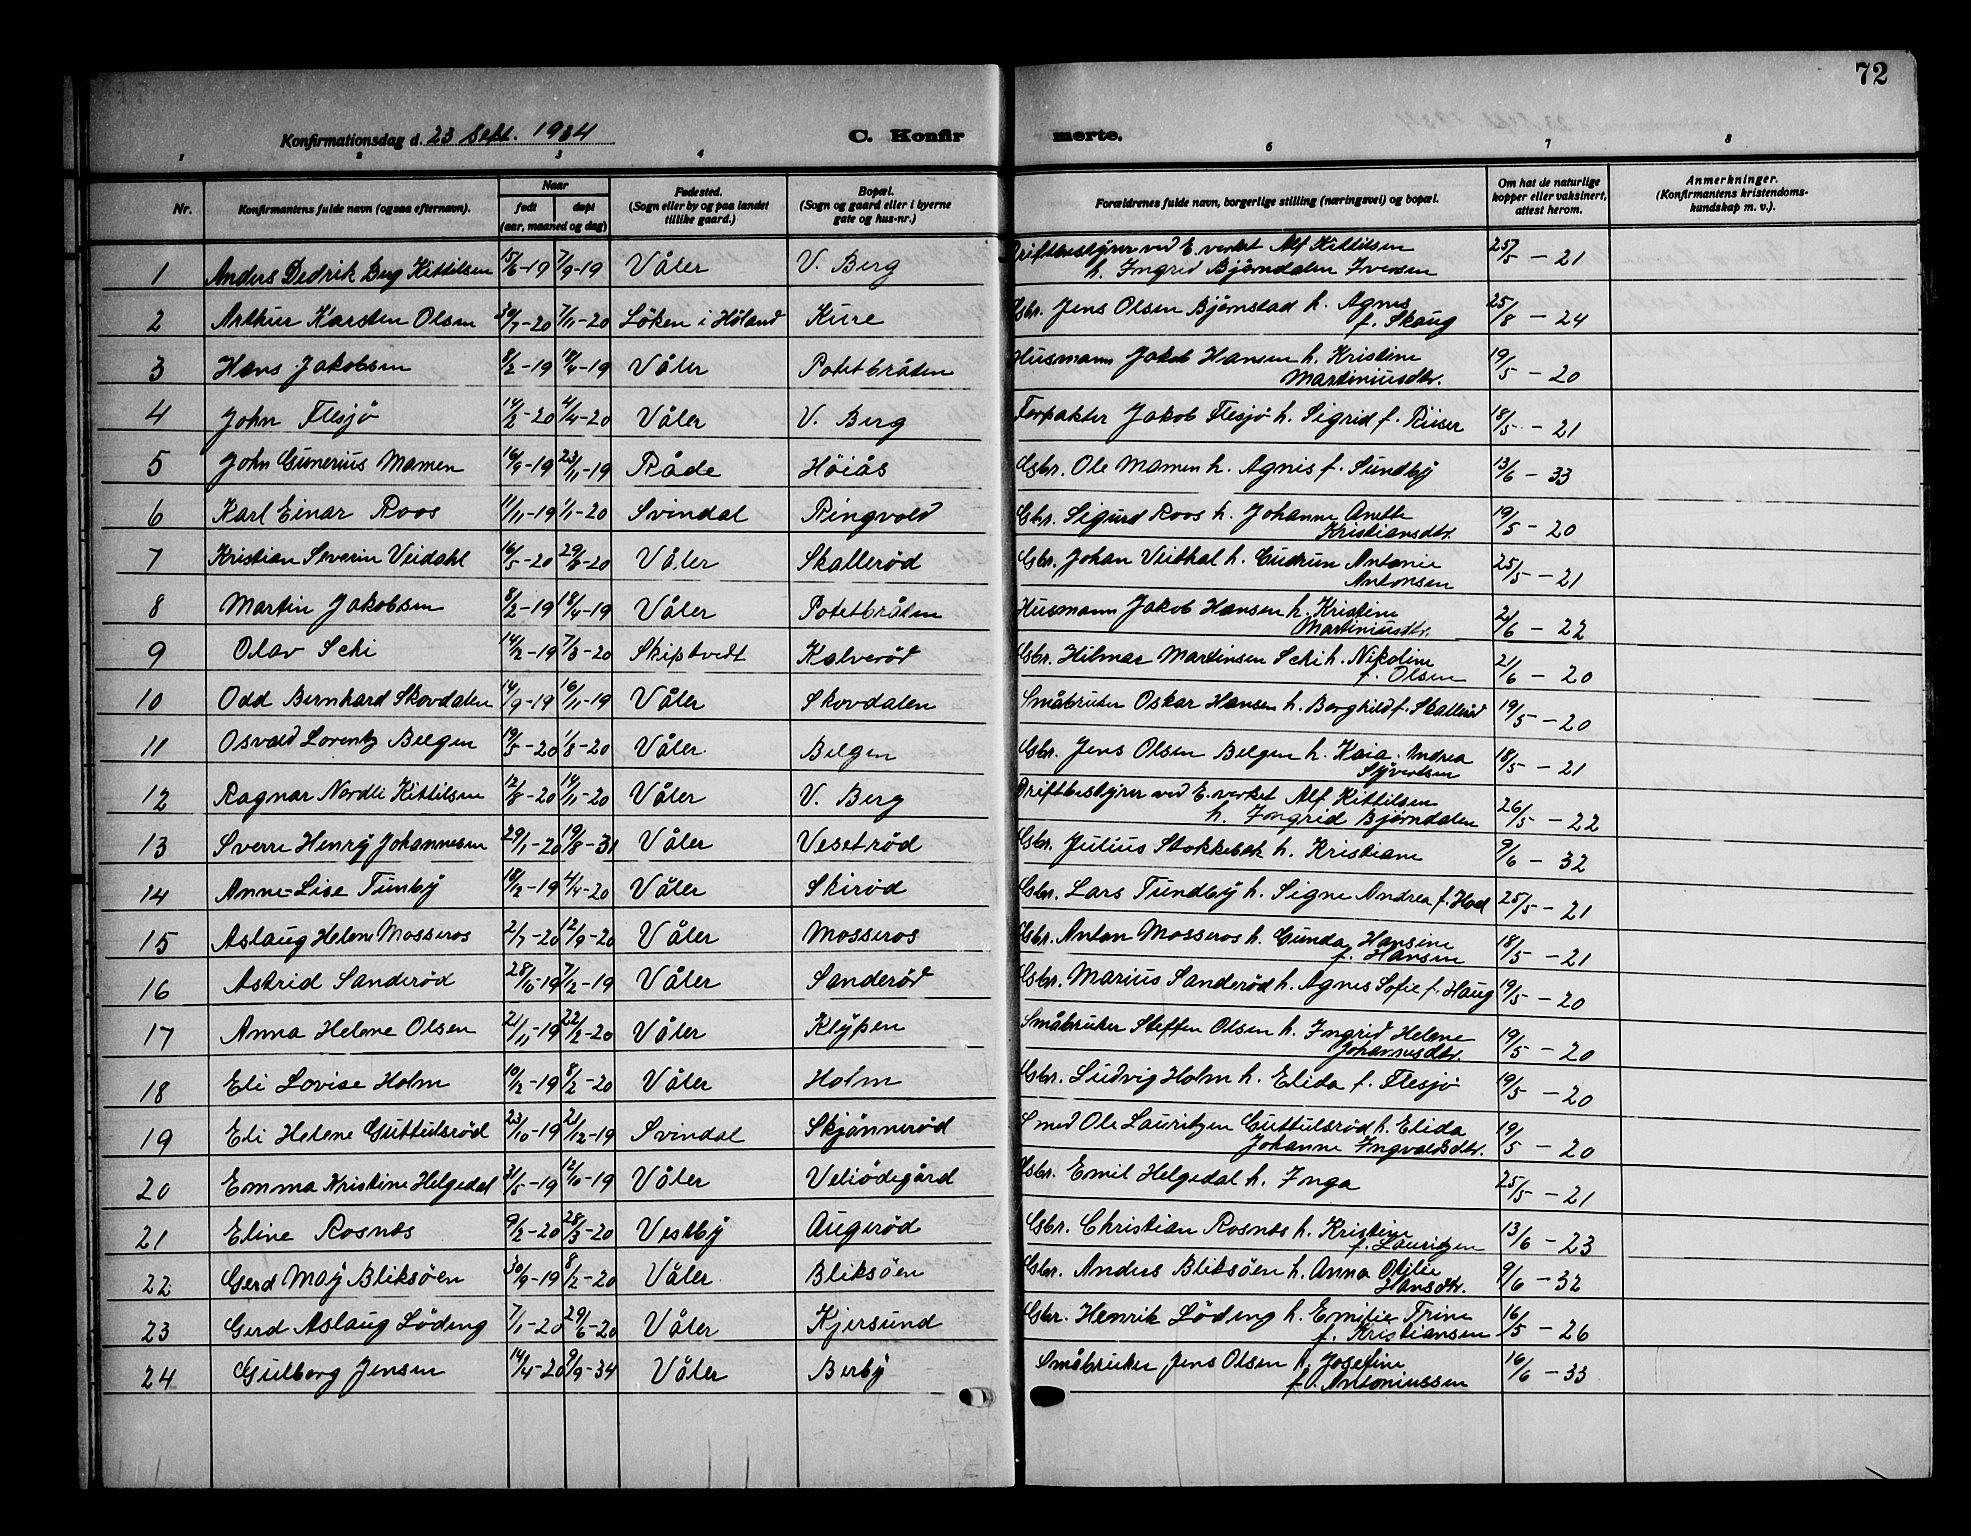 72
Konfirmationsdag d. 23 Sept. 1934 C. Konfirmerte.
1 2 3 4 5 6 7 8
Nr. Konfirmantens fulde navn (ogsaa efternavn). Naar født døpt (aar, maaned og dag) Fødested. (Sogn eller by og paa landet tillike gaard.) Bopæl. (Sogn og gaard eller i byerne gate og hus-nr.) Forældrenes fulde navn, borgerlige stilling (næringsvei) og bopæl. Om hat de naturlige kopper eller vaksinert, attest herom. Anmerkninger. (Konfirmantens kristendoms-kundskap m. v.).
1 Anders Dedrik Berg Kittilsen 15/6-19 7/9-19 Våler V. Berg Driftbestyrer ved E.verket Alf Kittilsen h. Ingrid Bjørndalen Iversen 25/5-21
2 Arthur Karsten Olsen 30/7-20 7/11-20 Löken i Höland Kure Gbr. Jens Olsen Bjørnstad h. Agnes f. Skaug 25/8-24
3 Hans Jakobsen 8/2-19 18/4-19 Våler Potetbråten Husmann Jakob Hansen h. Kristine Martiniusdtr. 19/5-20
4 John Flesjø 14/2-20 4/4-20 Våler V. Berg Forpakter Jakob Flesjø h. Sigrid f. Riiser 18/5-21
5 John Gunerius Mamen 16/9-19 23/11-19 Råde Höiås Gbr. Ole Mamen h. Agnis f. Sundby 13/6-33
6 Karl Einar Roos 11/11-19 1/1-20 Svindal Ringvold Gbr. Sigurd Roos h. Johanne Anette Kristiansdtr. 19/5-20
7 Kristian Severin Veidahl 16/5-20 29/8-20 Våler Skallerød Gbr. Johan Veidhal h. Gudrun Antonie Antonsen 25/5-21
8 Martin Jakobsen 8/2-19 18/4-19 Våler Potetbråten Husmann Jakob Hansen h. Kristine Martiniusdtr. 21/6-22
9 Olav Schi 14/2-19 7/3-20 Skiptvedt Kalverød Gbr. Hilmar Martinsen Schi h. Nikoline f. Olsen 21/6-20
10 Odd Bernhard Skovdalen 14/9-19 16/11-19 Våler Skovdalen Småbruker Oskar Hansen h. Borghild f. Skallerød 19/5-20
11 Osvald Lorentz Belgen 19/5-20 1/8-20 Våler Belgen Gbr. Jens Olsen Belgen h. Kaia Andrea Syvertsen 18/5-21
12 Ragnar Nordli Kittilsen 12/8-20 14/11-20 Våler V. Berg Driftbestyrer ved E.verket Alf Kittilsen h. Ingrid Bjørndalen 26/5-22
13 Sverre Henry Johannesen 29/1-20 19/8-31 Våler Vesetrød Gbr. Julius Stokkebæk h. Kristiane 9/6-32
14 Anne-Lise Tunby 18/12-19 4/4-20 Våler Skirød Gbr. Lars Tundby h. Signe Andrea f. Hoel 25/5-21
15 Aslaug Helene Mosseros 2/7-20 12/9-20 Våler Mosseros Gbr. Anton Mosseros h. Gunda Hansine f. Hansen 18/5-21
16 Astrid Sanderød 28/10-19 7/12-19 Våler Sanderød Gbr. Marius Sanderød h. Agnes Sofie f. Haug 19/5-20
17 Anna Helene Olsen 21/11-19 22/2-20 Våler Klypen Småbruker Steffen Olsen h. Ingrid Helene Johannesdtr. 19/5-20
18 Eli Lovise Holm 10/12-19 8/2-20 Våler Holm Gbr. Ludvig Holm h. Elida f. Flesjø 19/5-20
19 Eli Helene Guttulsrød 23/10-19 21/12-19 Svindal Skjønnerød Smed Ole Lauritzen Guttulsrød h. Elida Johanne Ingvaldsdtr. 19/5-20
20 Emma Kristine Helgedal 31/5-19 12/10-19 Våler Veliødegård Gbr. Emil Helgedal h. Inga 25/5-21
21 Eline Rosnæs 9/2-20 28/3-20 Vestby Augerød Gbr. Christian Rosnæs h. Kristine f. Lauritzen 13/6-23
22 Gerd May Bliksøen 30/9-19 8/2-20 Våler Bliksøen Gbr. Anders Bliksøen h. Anna Otilie Hansdtr. 9/6-32
23 Gerd Aslaug Løding 7/1-20 29/6-20 Våler Kjersund Gbr. Henrik Løding h. Emilie Trine f. Kristiansen 16/5-26
24 Gulborg Jensen 14/4-20 9/9-34 Våler Berby Småbruker Jens Olsen h. Josefine f. Antoniussen 16/6-33